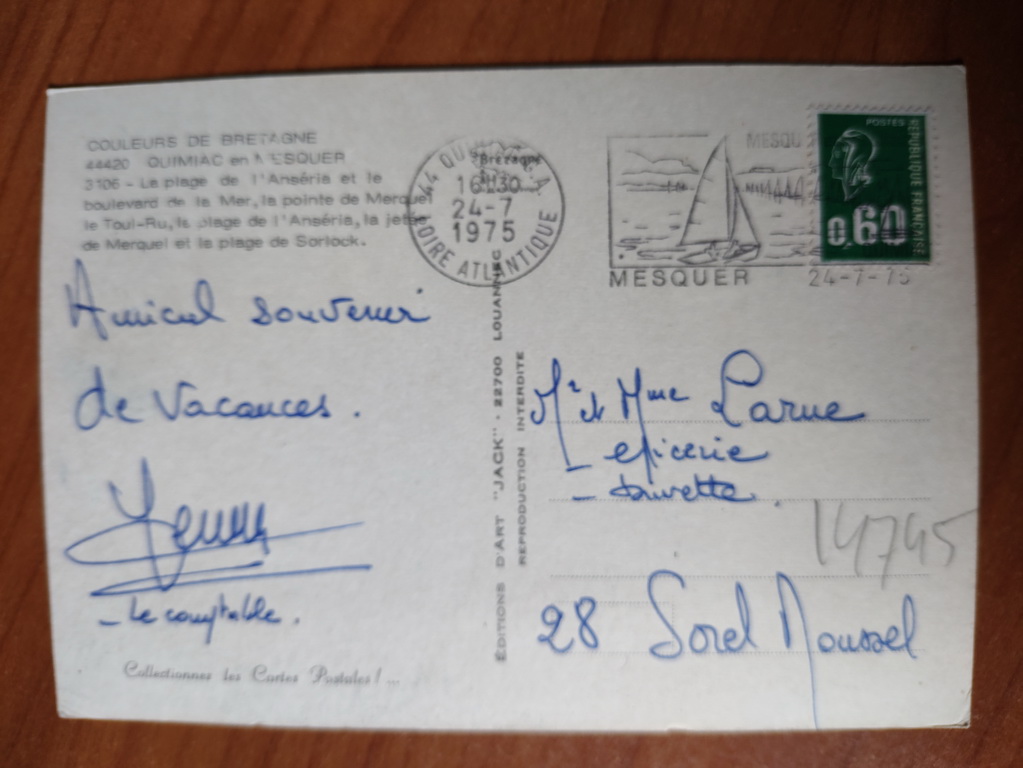 COULEURS DE BRETAGNE
44420 QUIMIAC en MESQUER
3106 - La plage de l'Anséria et le
boulevard de la Mer, la pointe de Merquel
le Toul-Ru, la plage de l'Anséria, la jetée
de Merquel et la plage de Sorlock.
Amical souvenir
de Vacances.
- Le comptable.
Collectionnez les Cartes Postales ! ...
44 QUIMIAC
16H30
24-7
1975
LOIRE ATLANTIQUE
MESQU
MESQUER
24-7-75
POSTES
REPUBLIQUE FRANÇAISE
0,60
EDITIONS D'ART "JACK" - 22700 LOUANNEC
REPRODUCTION INTERDITE
Mr & Mme Larue
- epicerie
- buvette.
14745
28 Sorel Moussel